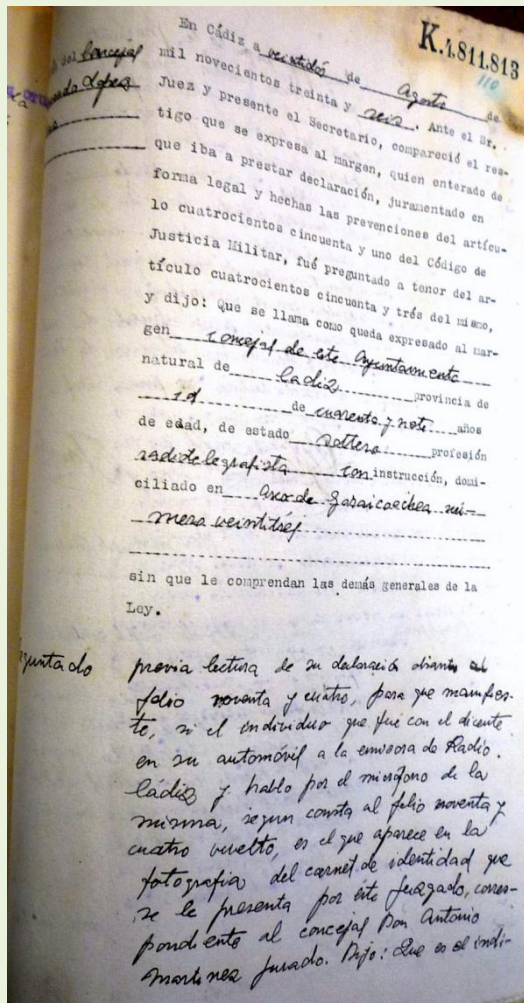 K.1.811.813
110
En Cádiz a veintidós de Agosto de
mil novecientos treinta y seis. Ante el Sr.
Juez y presente el Secretario, compareció el tes-
tigo que se expresa al margen, quien enterado de
que iba a prestar declaración, juramentado en
forma legal y hechas las prevenciones del artícu-
lo cuatrocientos cincuenta y uno del Código de
Justicia Militar, fué preguntado a tenor del ar-
tículo cuatrocientos cincuenta y trés del mismo,
y dijo: Que se llama como queda expresado al mar-
gen concejal de este Ayuntamiento
natural de Cadiz provincia de
id de cuarenta y años
de edad, de estado soltero profesión
radiotelegrafista con instrucción, domi-
ciliado en nú-
mero veintitrés
sin que le comprendan las demás generales de la
Ley.
del Concejal
Lopez
guntado
previa lectura de su declaración obrante al
folio noventa y cuatro, para que manifies-
te, si el individuo que fue con el dicente
en su automóvil a la emisora de Radio
Cádiz y hablo por el micrófono de la
misma, segun consta al folio noventa y
cuatro vuelto, es el que aparece en la
fotografia del carnet de identidad que
se le presenta por este Juzgado, corres-
pondiente al concejal Don Antonio
Martinez Jurado. Dijo: Que es el indi-